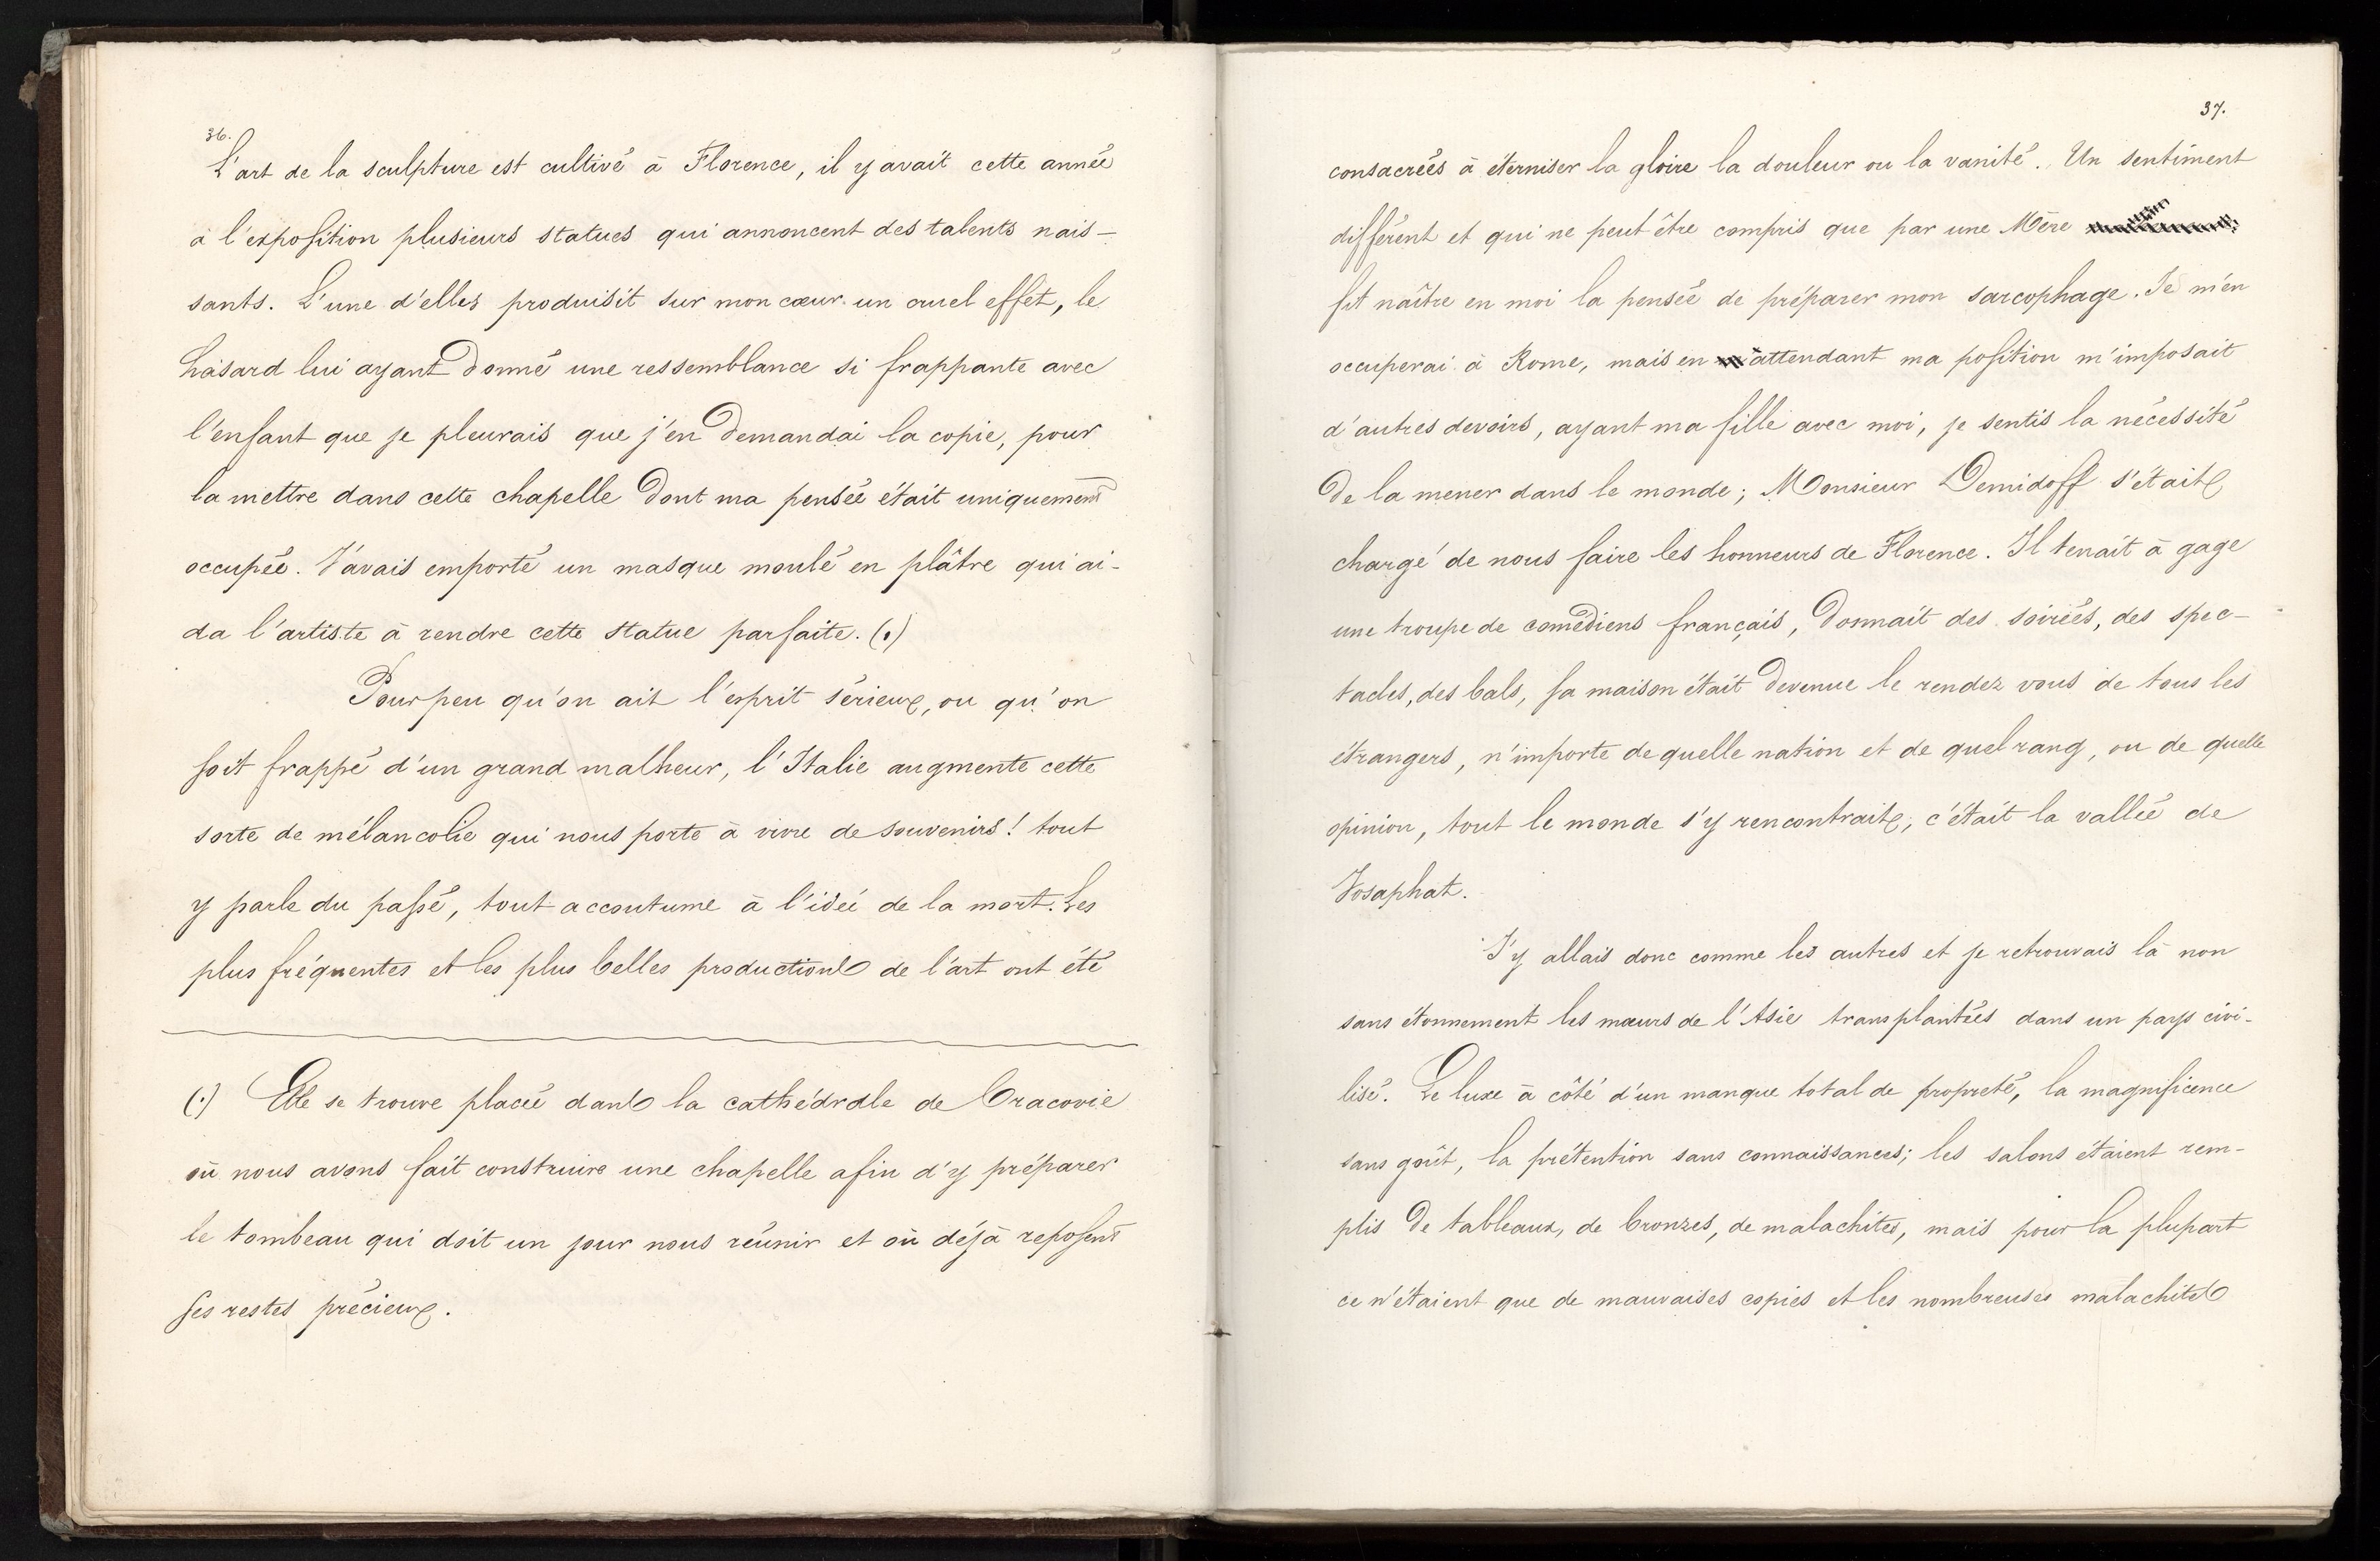 36.
L'art de la sculpture est cultivé à Florence, il y avait cette année
à l'exposition plusieurs statues qui annoncent des talents nais-
sants. L'une d'elles produisit sur mon cœur un cruel effet, le
hasard lui ayant donné une ressemblance si frappante avec
l'enfant que je pleurais que j'en demandai la copie, pour
la mettre dans cette chapelle dont ma pensée était uniquement
occupée. J'avais emporté un masque moulé en plâtre qui ai-
da l'artiste à rendre cette statue parfaite. (.)
Pour peu qu'on ait l'esprit sérieux, ou qu'on
soit frappé d'un grand malheur, l'Italie augmente cette
sorte de mélancolie qui nous porte à vivre de souvenirs! tout
y parle du passé, tout accoutume à l'idée de la mort. Les
plus fréquentes et les plus belles productions de l'art ont été
(.) Elle se trouve placée dans la cathédrale de Cracovie
où nous avons fait construire une chapelle afin d'y préparer
le tombeau qui doit un jour nous réunir et où déjà reposent
ses restes précieux.
37.
consacrées à éterniser la gloire la douleur ou la vanité. Un sentiment
différent et qui ne peut être compris que par une Mère
fit naître en moi la pensée de préparer mon sarcophage. Je m'en
occuperai à Rome, mais en attendant ma position m'imposait
d'autres devoirs, ayant ma fille avec moi, je sentis la nécessité
de la mener dans le monde; Monsieur Demidoff s'était
chargé de nous faire les honneurs de Florence. Il tenait à gage
une troupe de comédiens français, donnait des soirées, des spec-
tacles, des bals, sa maison était devenue le rendez vous de tous les
étrangers, n'importe de quelle nation et de quel rang, ou de quelle
opinion, tout le monde s'y rencontrait, c'était la vallée de
Josaphat.
J'y allais donc comme les autres et je retrouvais là non
sans étonnement les mœurs de l'Asie transplantées dans un pays civi-
lisé. Le luxe à côté d'un manque total de propreté, la magnificence
sans goût, la prétention sans connaissances; les salons étaient rem-
plis de tableaux, de bronzes, de malachites, mais pour la plupart
ce n'étaient que de mauvaises copies et les nombreuses malachites